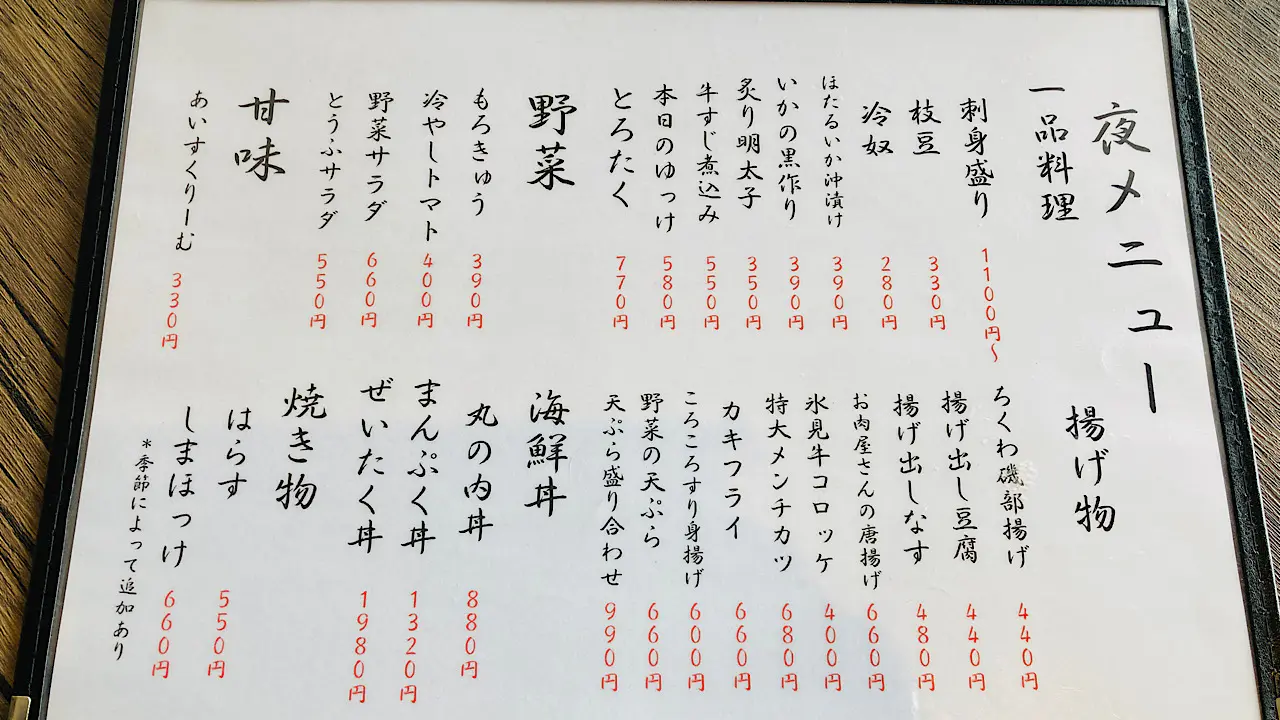 夜メニュー
一品料理
刺身盛り 1100円〜
枝豆 330円
冷奴 280円
ほたるいか沖漬け 390円
いかの黒作り 390円
炙り明太子 350円
牛すじ煮込み 550円
本日のゆっけ 580円
とろたく 770円
野菜
もろきゅう 390円
冷やしトマト 400円
野菜サラダ 660円
とうふサラダ 550円
甘味
あいすくりーむ 330円
揚げ物
ちくわ磯部揚げ 440円
揚げ出し豆腐 440円
揚げ出しなす 480円
お肉屋さんの唐揚げ 660円
氷見牛コロッケ 400円
特大メンチカツ 680円
カキフライ 660円
ころころすり身揚げ 600円
野菜の天ぷら 660円
天ぷら盛り合わせ 990円
海鮮丼
丸の内丼 880円
まんぷく丼 1320円
ぜいたく丼 1980円
焼き物
はらす 550円
しまほっけ 660円
*季節によって追加あり